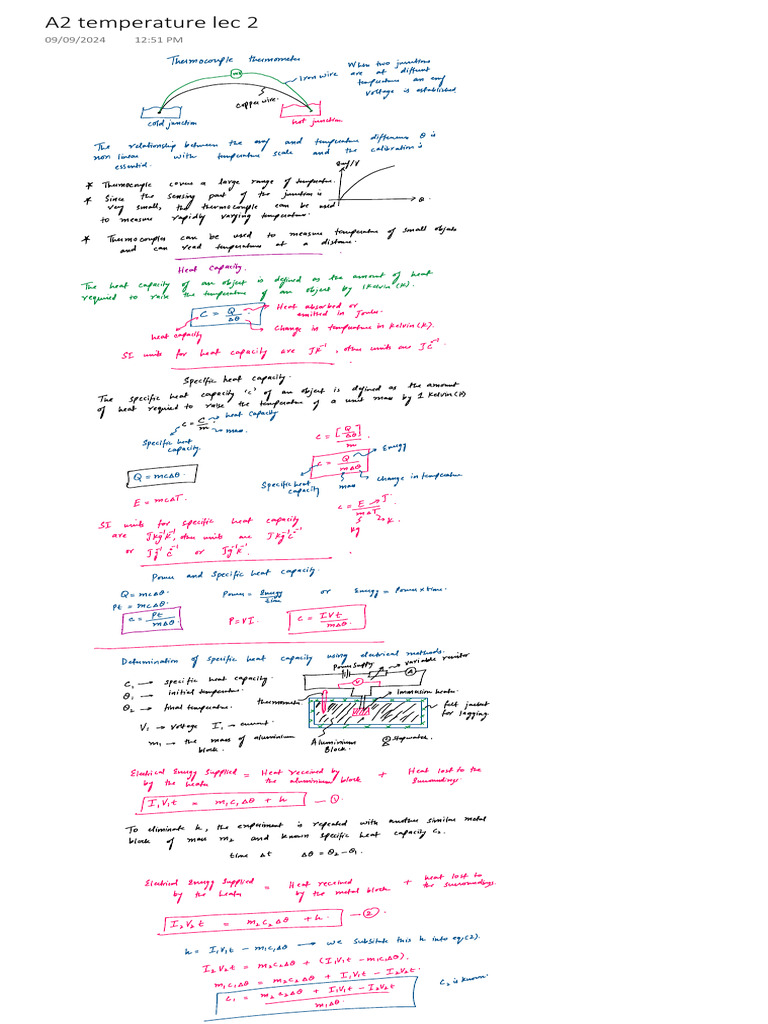 A2 temperature lec 2
09/09/2024 12:51 PM
Thermocouple thermometer
When two junctions
are at different
temperature an emf/
voltage is established.
Iron wire
Copper wire.
cold junction
hot junction
The relationship between the emf and temperature difference θ is
non linear with temperature scale and the calibration is
essential.
emf/V
θ
* Thermocouple covers a large range of temperature.
* Since the sensing part of the junction is
very small, the thermocouple can be used
to measure rapidly varying temperature.
* Thermocouples can be used to measure temperature of small objects
and can read temperature at a distance.
Heat Capacity.
The heat capacity of an object is defined as the amount of heat
required to raise the temperature of an object by 1 Kelvin (K).
C = Q/Δθ
Heat absorbed or
emitted in Joules.
Change in temperature in Kelvin (K).
heat capacity
SI units for heat capacity are JK⁻¹, other units are J°C⁻¹
Specific heat capacity.
The specific heat capacity 'c' of an object is defined as the amount
of heat required to raise the temperature of a unit mass by 1 Kelvin (K)
c = C/m
heat capacity
mass.
Specific heat
capacity.
c = [Q/Δθ]/m
c = Q/mΔθ
Energy
Specific heat
capacity
mass
change in temperature
Q = mcΔθ.
E = mcΔT.
c = E/mΔT
J
K
kg
SI units for specific heat capacity
are Jkg⁻¹K⁻¹, other units are Jkg⁻¹°C⁻¹
or Jg⁻¹°C⁻¹ or Jg⁻¹K⁻¹.
Power and Specific heat capacity.
Q = mcΔθ.
Power = Energy/time or Energy = Power × time.
Pt = mcΔθ.
c = Pt/mΔθ.
P = VI.
c = IVt/mΔθ.
Determination of specific heat capacity using electrical methods.
C₁ → specific heat capacity.
θ₁ → initial temperature.
θ₂ → final temperature.
V₁ → voltage I₁ → current.
m₁ → the mass of aluminium
block.
Power supply
variable resistor
A
V
thermometer
Immersion heater.
felt jacket
for lagging.
Aluminium
Block.
Stopwatch.
Electrical Energy Supplied = Heat received by + Heat lost to the
by the heater the aluminium block surroundings
I₁V₁t = m₁c₁Δθ + h — ①
To eliminate h, the experiment is repeated with another similar metal
block of mass m₂ and known specific heat capacity c₂.
time Δt Δθ = θ₂ - θ₁.
Electrical Energy Supplied = Heat received + heat lost to
by the heater by the metal block the surroundings.
I₂V₂t = m₂c₂Δθ + h. — ②
h = I₁V₁t - m₁c₁Δθ → we substitute this h into eq(2).
I₂V₂t = m₂c₂Δθ + (I₁V₁t - m₁c₁Δθ).
m₁c₁Δθ = m₂c₂Δθ + I₁V₁t - I₂V₂t.
c₁ = m₂c₂Δθ + I₁V₁t - I₂V₂t/m₁Δθ.
c₂ is known.